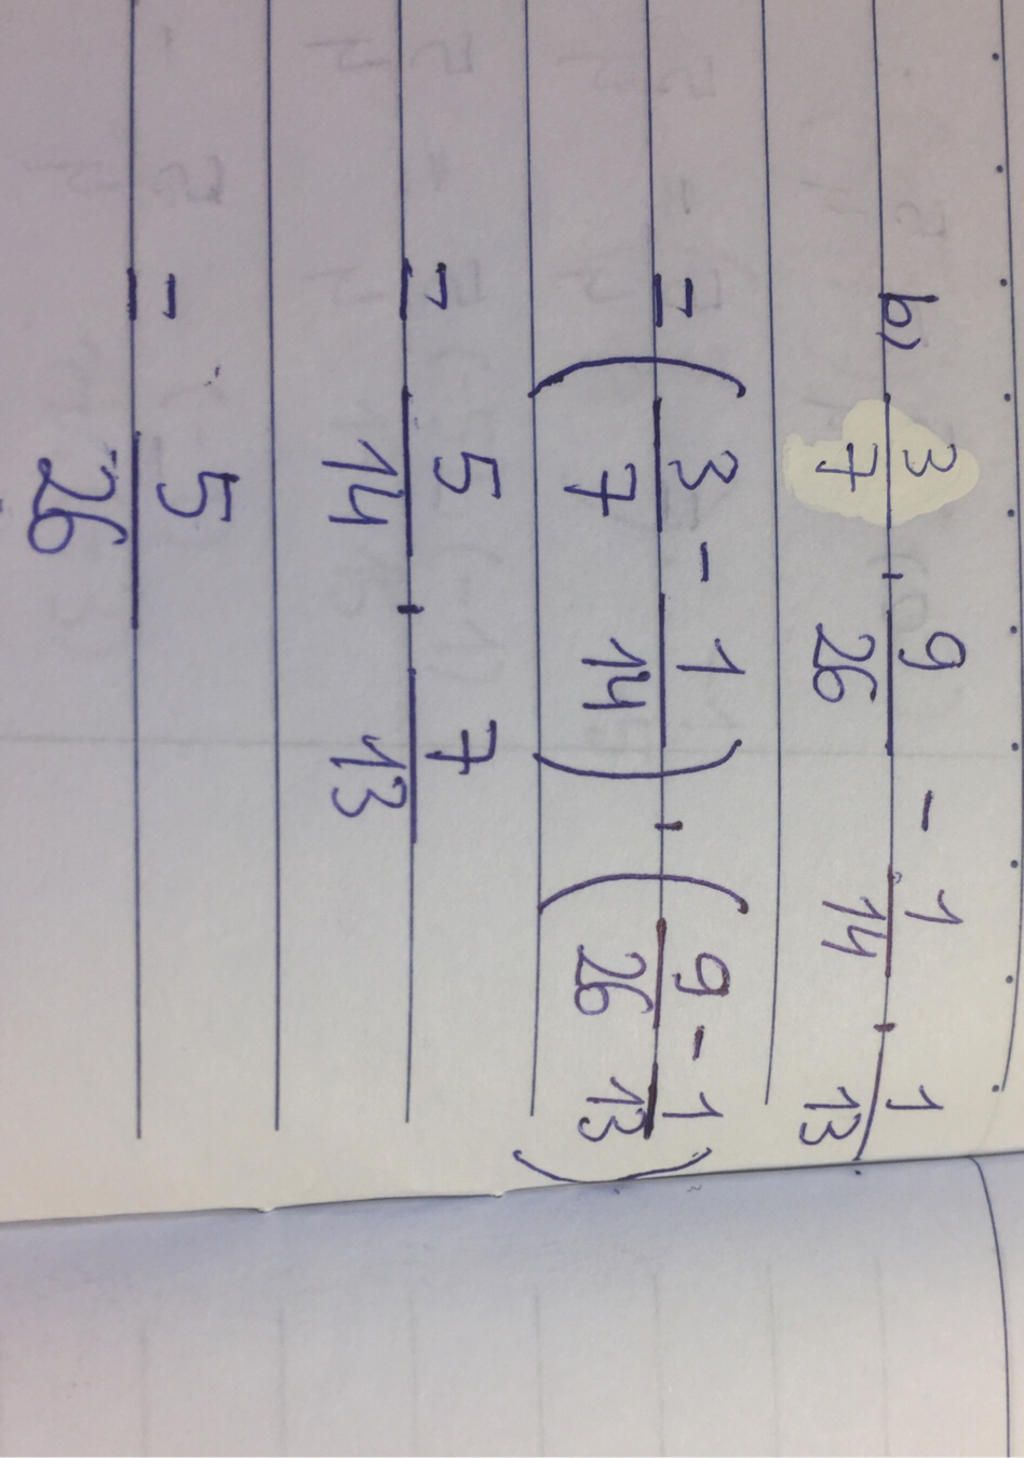 b) 3/7 · 9/26 - 1/14 · 1/13
= (3/7 - 1/14) · (9/26 - 1/13)
= 5/14 · 7/13
= 5/26